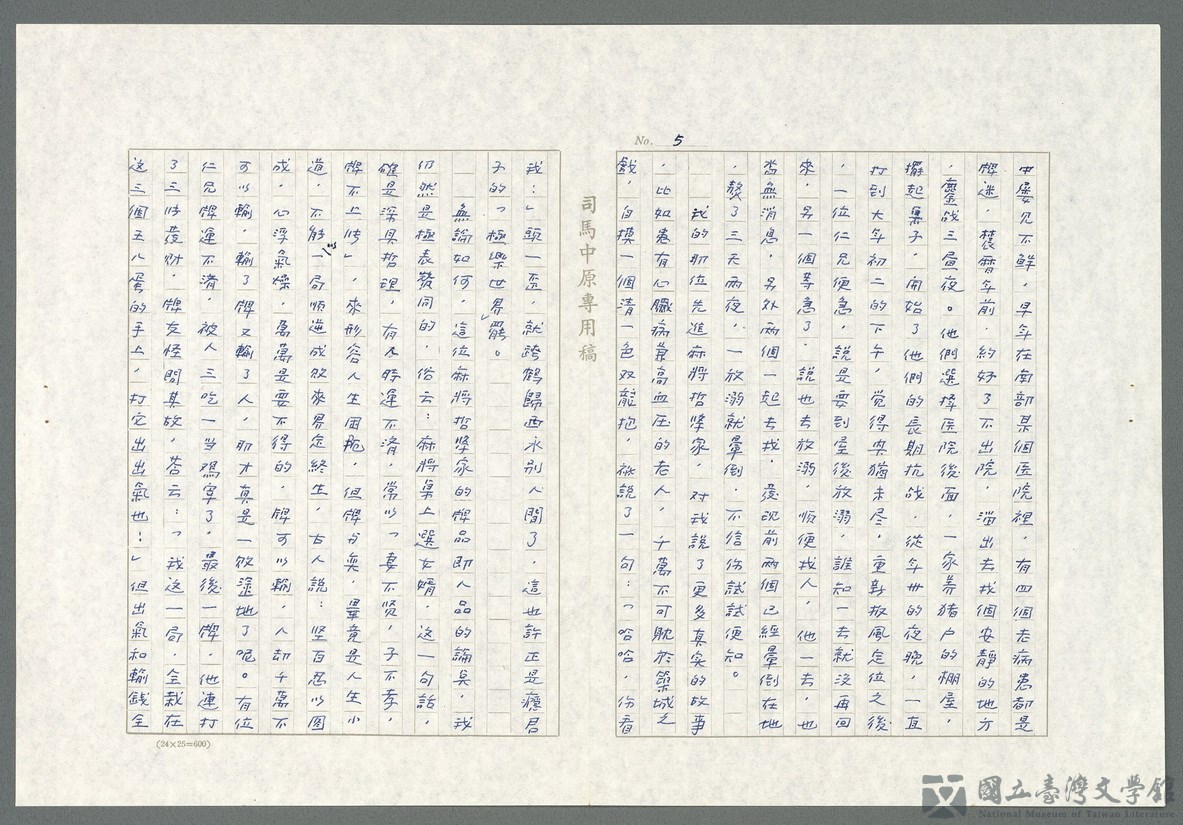 No. 5
中屡见不鮮，早年在南部某個医院裡，有四個老病患都是
牌迷，農曆年前，約好了不出院，溜出去找個安靜的地方
，鏖战三晝夜。他們選擇医院後面，一家养豬户的棚屋，
擺起桌子，開始了他們的長期抗战，從年卅的夜晚，一直
打到大年初二的下午，觉得興猶未尽，重新搬風定位之後
，一位仁兄便急，説是要到屋後放溺，誰知一去就没再回
來，另一個等急了，説也去放溺，順便找人，他一去，也
杳無消息，另外兩個一起去找，發现前兩個已經暈倒在地
，熬了三天兩夜，一放溺就暈倒，不信你試試便知。
我的那位先進麻將哲學家，对我說了更多真实的故事
，比如患有心臟病兼高血圧的老人，千萬不可耽於築城之
戲，自摸一個清一色双龍抱，祗説了一句：「哈哈，你看
司馬中原專用稿
我：」頭一歪，就跨鶴歸西永别人間了，這也許正是癮君
子的「極樂世界」罷。
無論如何，這位麻將哲學家的牌品即人品的論臭，我
仍然是極表贊同的，俗云：麻將桌上選女婿，这一句話，
確是深具哲理，有人時運不濟，常以「妻不贤，子不孝，
牌不上時」，來形容人生困軛，但牌为奕，畢竟是人生小
道，不能以一局順逆成敗來易定終生，古人説：坚百忍以图
成，心浮氣燥，萬萬是要不得的，牌可以輸，人却千萬不
可以輸，輸了牌又輸了人，那才真是一敗塗地了呢。有位
仁兄牌運不濟，被人三吃一当鴻宰了，最後一牌，他連打
了三时發财，牌友怪問其故，荅云：「我这一局，全栽在
这三個王八蛋的手上，打它出出氣也！」但出氣和輸錢全
(24×25=600)
國立臺灣文學館
National Museum of Taiwan Literature